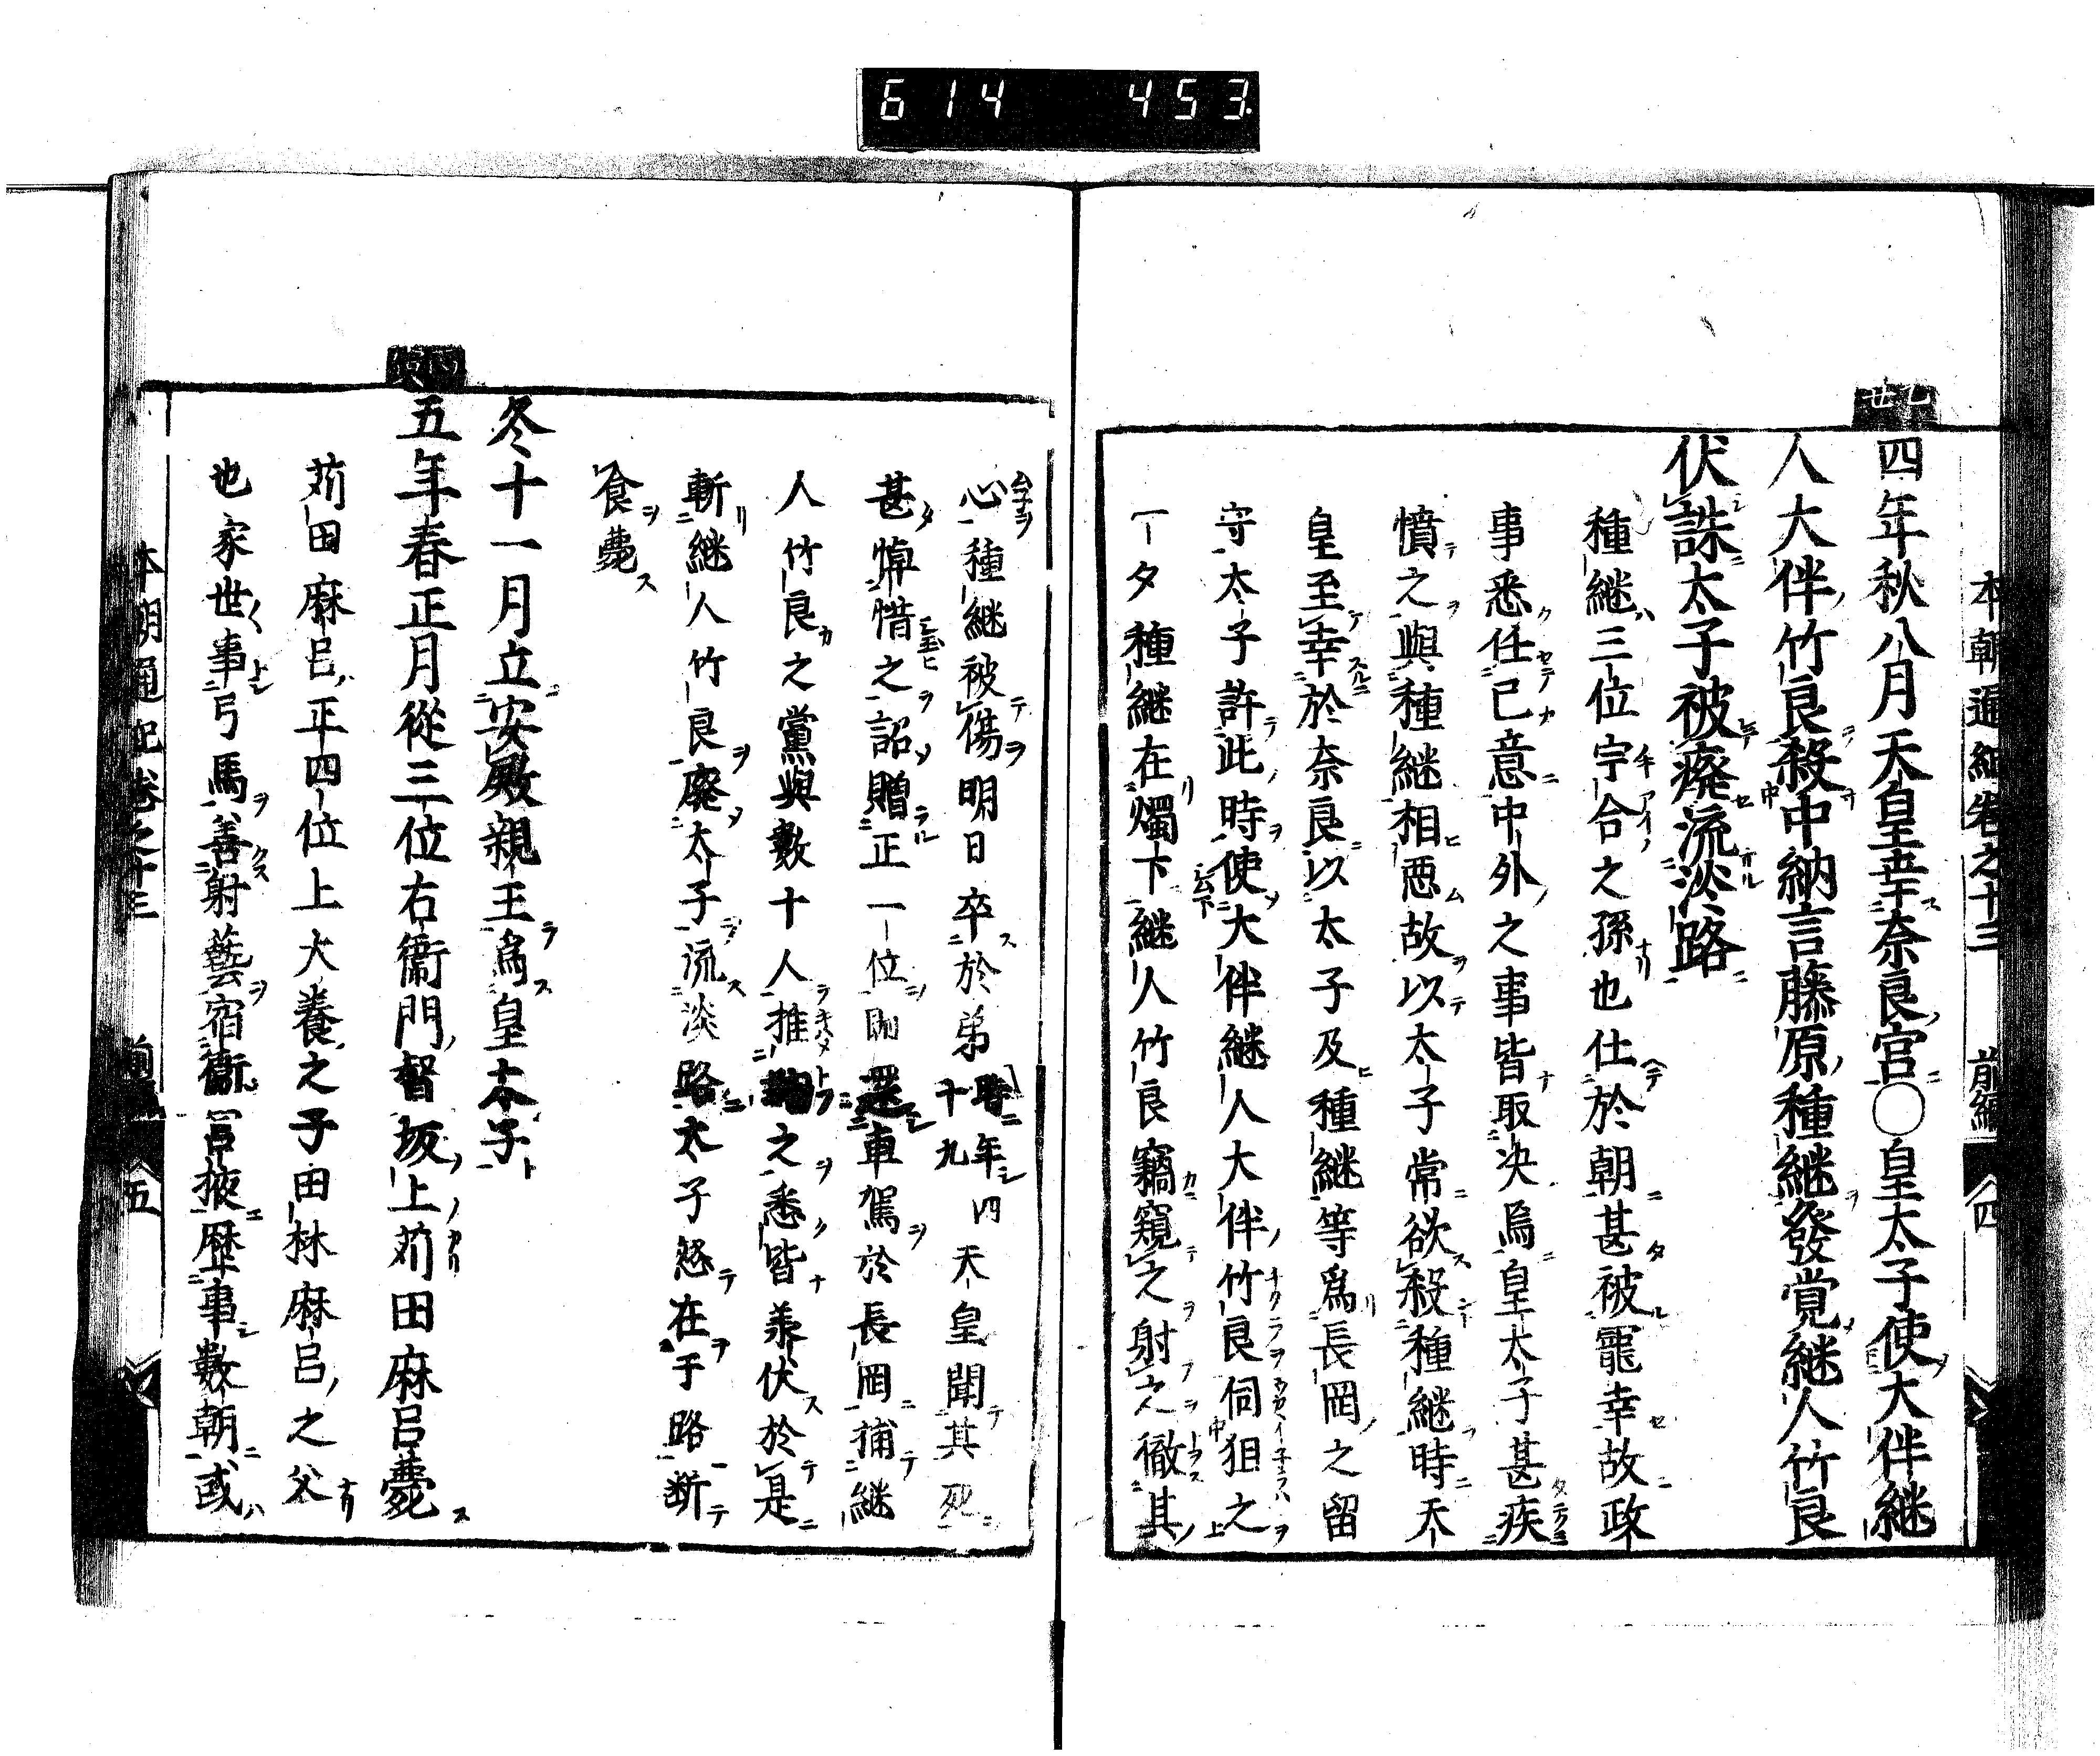 614 453
本朝通紀卷之十三 前編 四
乙丑
四年秋八月天皇幸奈良宮〇皇太子使大伴継
人大伴竹良殺中納言藤原種継發覚継人竹良
伏誅太子被廢流淡路
種継三位宇合之孫也仕於朝甚被寵幸故政
事悉任已意中外之事皆取决焉皇太子甚疾
憤之與種継相惡故以太子常欲殺種継時天
皇至幸於奈良以太子及種継等爲長岡之留
守太子許此時使大伴継人大伴竹良伺狙之
一夕種継在燭下継人竹良竊窺之射之徹其
心種継被傷明日卒於弟時年四十九天皇聞其死
甚悼惜之詔贈正一位即還車駕於長岡捕継
人竹良之黨與數十人推鞫之悉皆承伏於是
斬継人竹良廢太子流淡路太子怒在于路断
食薨
冬十一月立安殿親王爲皇太子
丙寅
五年春正月從三位右衞門督坂上苅田麻呂薨
苅田麻呂正四位上犬養之子田村麻呂之父
也家世事弓馬善射藝宿衞宮掖歴事數朝或
本朝通紀卷之十三 前編 五